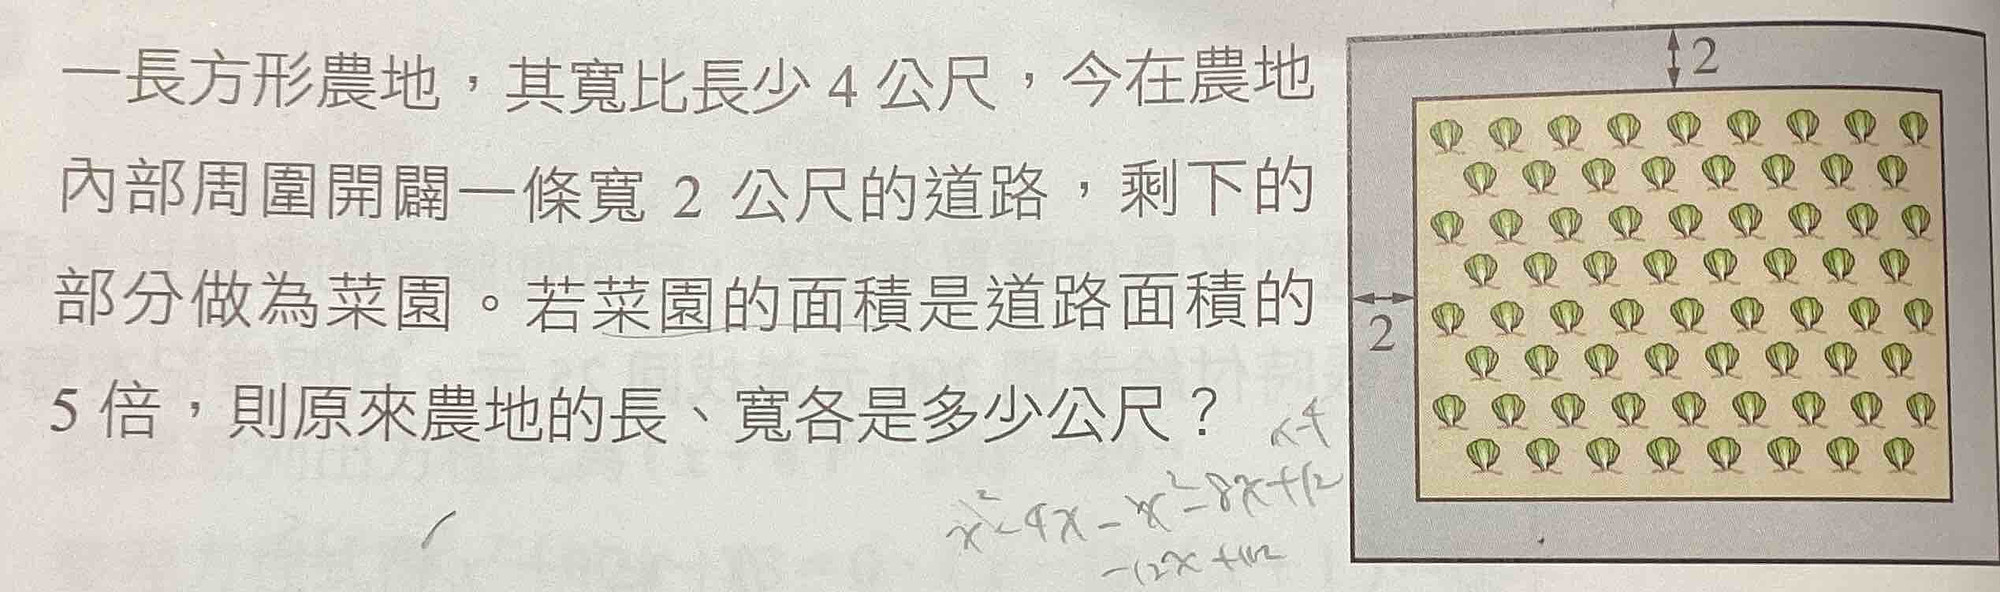 一長方形農地，其寬比長少 4 公尺，今在農地
內部周圍開闢一條寬 2 公尺的道路，剩下的
部分做為菜園。若菜園的面積是道路面積的
5 倍，則原來農地的長、寬各是多少公尺？
2
2
x-4
x²-4x-x²-8x+12